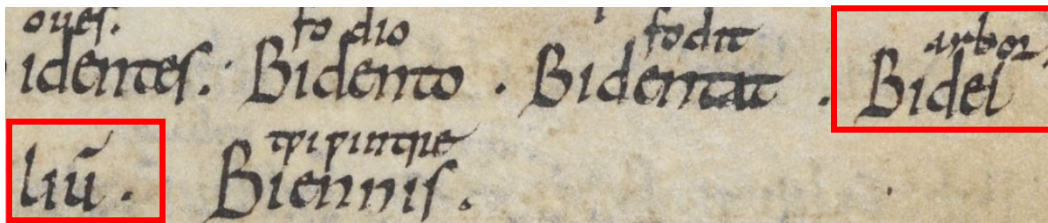 oues. fodio fodit arbor
identes. Bidento. Bidentat. Bidel
tƿiƿintre
liū. Biennis.